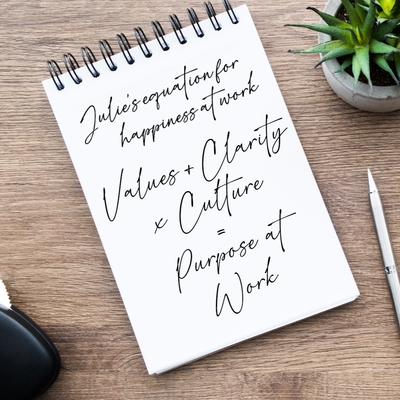 Julie's equation for
happiness at work
Values + Clarity
x Culture
=
Purpose at
Work